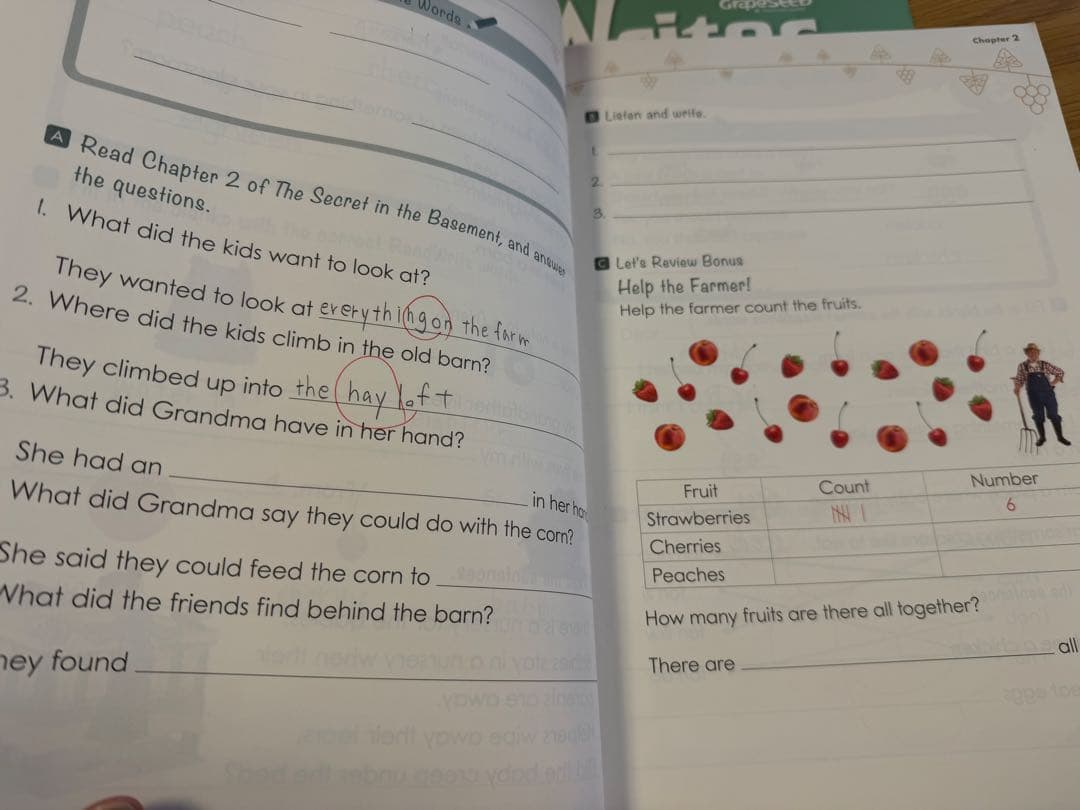 Words
A Read Chapter 2 of The Secret in the Basement, and answer
the questions.
1. What did the kids want to look at?
They wanted to look at everything on the farm
2. Where did the kids climb in the old barn?
They climbed up into the hay loft
3. What did Grandma have in her hand?
She had an in her
What did Grandma say they could do with the corn?
She said they could feed the corn to
What did the friends find behind the barn?
hey found
GrapeSEED
Writer
Chapter 2
B Listen and write.
1.
2.
3.
C Let's Review Bonus
Help the Farmer!
Help the farmer count the fruits.
Fruit Count Number
Strawberries 6
Cherries
Peaches
How many fruits are there all together?
There are all